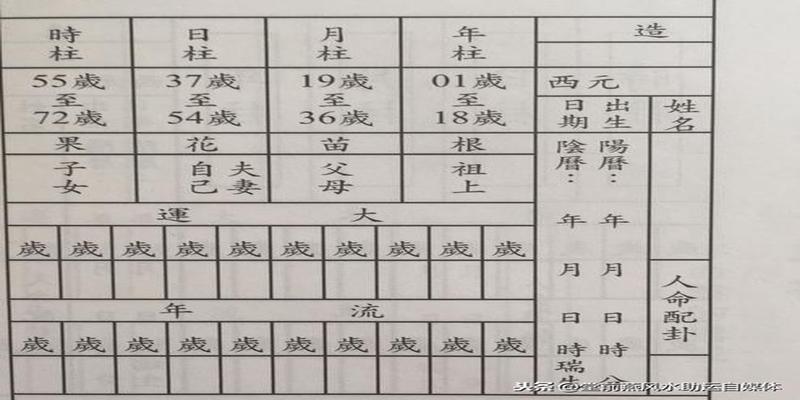 造
西元
姓名
出生日期
陽曆：年 月 日 時
陰曆：年 月 日 時瑞生
人命配卦
年柱
01歲至18歲
根
祖上
月柱
19歲至36歲
苗
父母
日柱
37歲至54歲
花
夫妻
自己
時柱
55歲至72歲
果
子女
大運
歲 歲 歲 歲 歲 歲 歲 歲 歲 歲
流年
歲 歲 歲 歲 歲 歲 歲 歲 歲 歲
头条 @堂前燕风水助运自媒体